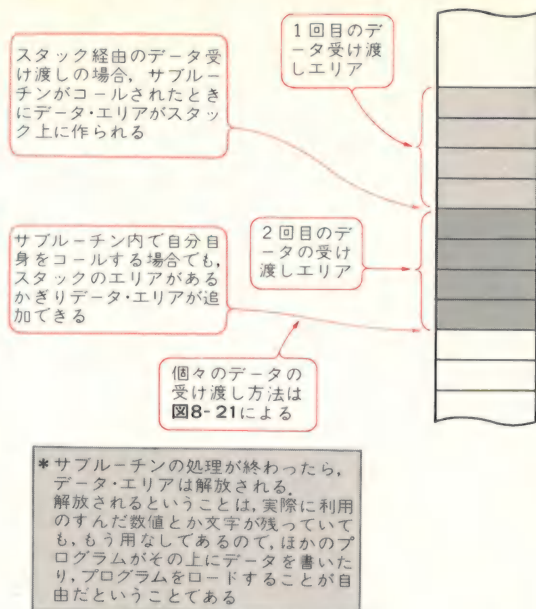 スタック経由のデータ受
け渡しの場合，サブルー
チンがコールされたとき
にデータ・エリアがスタッ
ク上に作られる
1回目のデ
ータ受け渡
しエリア
サブルーチン内で自分自
身をコールする場合でも，
スタックのエリアがある
かぎりデータ・エリアが追
加できる
2回目のデ
ータの受け
渡しエリア
個々のデータの
受け渡し方法は
図8-21による
*サブルーチンの処理が終わったら，
データ・エリアは解放される．
解放されるということは，実際に利用
のすんだ数値とか文字が残っていて
も，もう用なしであるので，ほかのプ
ログラムがその上にデータを書いた
り，プログラムをロードすることが自
由だということである